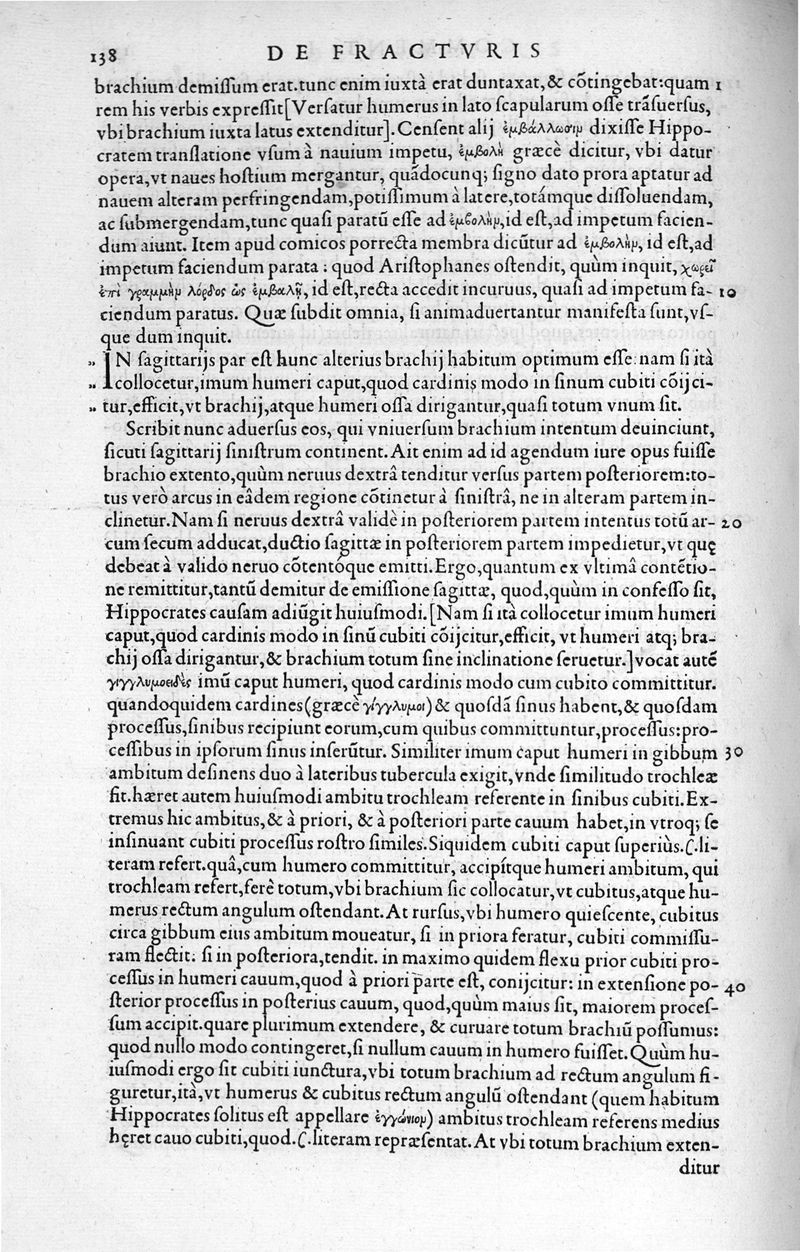 138 DE FRACTVRIS
brachium demiſſum erat.tunc enim iuxtà erat duntaxat,& cõtingebat:quam 1
rem his verbis expreſſit[Verſatur humerus in lato ſcapularum oſſe trãſuerſus,
vbi brachium iuxta latus extenditur].Cenſent alij ἐμβάλλωσιμ dixiſſe Hippo-
cratem tranſlatione vſum à nauium impetu, ἐμβολὴ græcè dicitur, vbi datur
opera,vt naues hoſtium mergantur, quãdocunq; ſigno dato prora aptatur ad
nauem alteram perfringendam,potiſſimum à latere,totámque diſſoluendam,
ac ſubmergendam,tunc quaſi paratũ eſſe ad ἐμβολὴμ,id eſt,ad impetum facien-
dum aiunt. Item apud comicos porrecta membra dicũtur ad ἐμβολὴμ, id eſt,ad
impetum faciendum parata : quod Ariſtophanes oſtendit, quùm inquit, χωρεῖ
ἐπὶ γραμμὴμ λόρδος ὡς ἐμβαλῆ, id eſt,recta accedit incuruus, quaſi ad impetum fa- 10
ciendum paratus. Quæ ſubdit omnia, ſi animaduertantur manifeſta ſunt,vſ-
que dum inquit.
„ IN ſagittarijs par eſt hunc alterius brachij habitum optimum eſſe: nam ſi ità
„ collocetur,imum humeri caput,quod cardinis modo in ſinum cubiti cõijci-
„ tur,efficit,vt brachij,atque humeri oſſa dirigantur,quaſi totum vnum ſit.
Scribit nunc aduerſus eos, qui vniuerſum brachium intentum deuinciunt,
ſicuti ſagittarij ſiniſtrum continent. Ait enim ad id agendum iure opus fuiſſe
brachio extento,quùm neruus dextrâ tenditur verſus partem poſteriorem:to-
tus verò arcus in eâdem regione cõtinetur à ſiniſtrâ, ne in alteram partem in-
clinetur.Nam ſi neruus dextrâ validè in poſteriorem partem intentus totũ ar- 20
cum ſecum adducat,ductio ſagittæ in poſteriorem partem impedietur,vt quę
debeat à valido neruo cõtentóque emitti.Ergo,quantum ex vltimâ contẽtio-
ne remittitur,tantũ demitur de emiſſione ſagittæ, quod,quùm in confeſſo ſit,
Hippocrates cauſam adiũgit huiuſmodi.[Nam ſi ità collocetur imum humeri
caput,quod cardinis modo in ſinũ cubiti cõijcitur,efficit, vt humeri atq; bra-
chij oſſa dirigantur,& brachium totum ſine inclinatione ſeruetur.]vocat autẽ
γιγγλυμοειδὲς imũ caput humeri, quod cardinis modo cum cubito committitur.
quandoquidem cardines(græcè γίγγλυμοι)& quoſdã ſinus habent,& quoſdam
proceſſus,ſinibus recipiunt eorum,cum quibus committuntur,proceſſus:pro-
ceſſibus in ipſorum ſinus inſerũtur. Similiter imum caput humeri in gibbum 30
ambitum deſinens duo à lateribus tubercula exigit,vnde ſimilitudo trochleæ
fit.hæret autem huiuſmodi ambitu trochleam referente in ſinibus cubiti.Ex-
tremus hic ambitus,& à priori, & à poſteriori parte cauum habet,in vtroq; ſe
inſinuant cubiti proceſſus roſtro ſimiles.Siquidem cubiti caput ſuperiùs.C.li-
teram refert.quâ,cum humero committitur, accipítque humeri ambitum, qui
trochleam refert,ferè totum,vbi brachium ſic collocatur,vt cubitus,atque hu-
merus rectum angulum oſtendant.At rurſus,vbi humero quieſcente, cubitus
circa gibbum eius ambitum moueatur, ſi in priora feratur, cubiti commiſſu-
ram flectit: ſi in poſteriora,tendit. in maximo quidem flexu prior cubiti pro-
ceſſus in humeri cauum,quod à priori parte eſt, conijcitur: in extenſione po- 40
ſterior proceſſus in poſterius cauum, quod,quùm maius ſit, maiorem proceſ-
ſum accipit.quare plurimum extendere, & curuare totum brachiũ poſſumus:
quod nullo modo contingeret,ſi nullum cauum in humero fuiſſet.Quùm hu-
iuſmodi ergo ſit cubiti iunctura,vbi totum brachium ad rectum angulum fi-
guretur,ità,vt humerus & cubitus rectum angulũ oſtendant (quem habitum
Hippocrates ſolitus eſt appellare ἐγγώνιομ) ambitus trochleam referens medius
hęret cauo cubiti,quod.C.literam repræſentat.At vbi totum brachium exten-
ditur